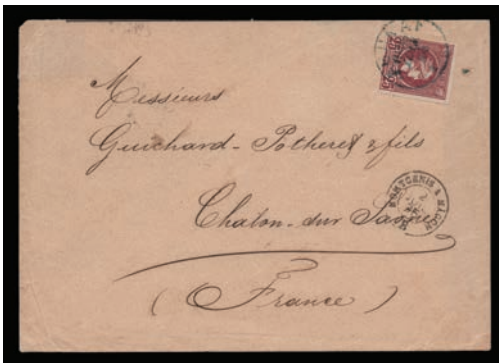 Messieurs
Guichard - Potheret & fils
Chalon-sur Saône
(France)
MONTCENIS À MACON